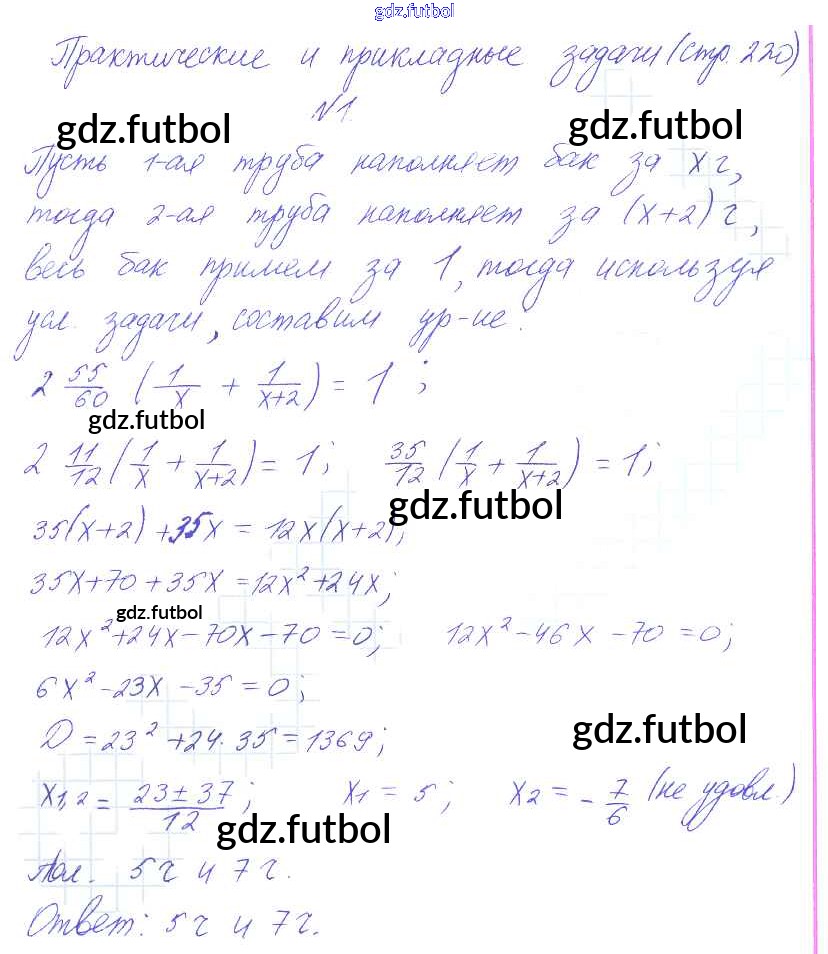 gdz.futbol
Практические и прикладные задачи (стр. 220)
№1.
gdz.futbol gdz.futbol
Пусть 1-ая труба наполняет бак за x г,
тогда 2-ая труба наполняет за (x+2) г,
весь бак примем за 1, тогда используя
усл. задачи, составим ур-ие:
2 55/60 (1/x + 1/(x+2)) = 1;
gdz.futbol
2 11/12 (1/x + 1/(x+2)) = 1; 35/12 (1/x + 1/(x+2)) = 1;
gdz.futbol
35(x+2) + 35x = 12x(x+2);
35x+70+35x = 12x²+24x;
gdz.futbol
12x²+24x-70x-70=0; 12x²-46x-70=0;
6x²-23x-35=0;
gdz.futbol
D = 23²+24·35=1369;
x1,2 = (23±37)/12; x1 = 5; x2 = -7/6 (не удовл.)
gdz.futbol
Пол. 5 г и 7 г.
Ответ: 5 г и 7 г.